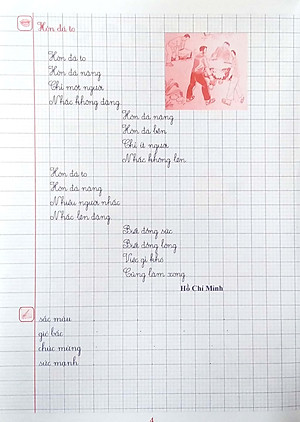 Hòn đá to
Hòn đá to
Hòn đá nặng
Chỉ một người
Nhấc không đặng.
Hòn đá nặng
Hòn đá bền
Chỉ ít người
Nhấc không lên.
Hòn đá to
Hòn đá nặng
Nhiều người nhấc
Nhấc lên đặng.
Biết đồng sức
Biết đồng lòng
Việc gì khó
Cũng làm xong.
Hồ Chí Minh
sắc màu
gió bấc
chúc mừng
sức mạnh
4